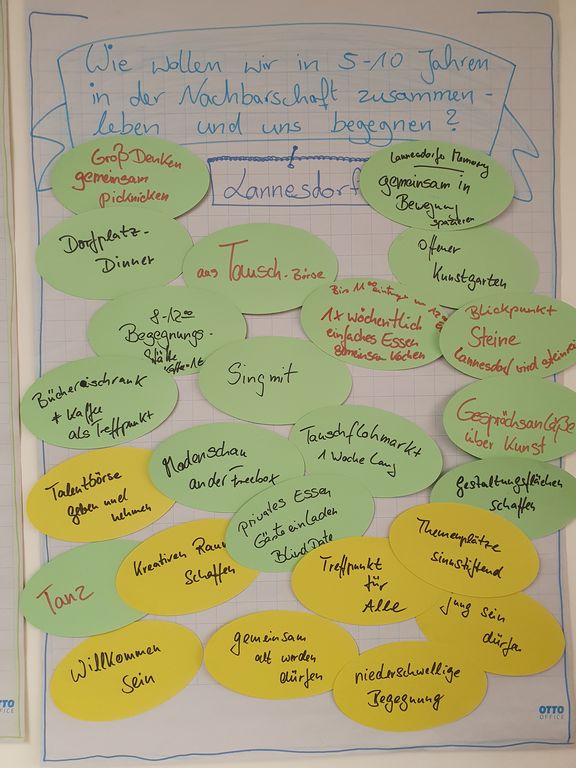 Wie wollen wir in 5-10 Jahren
in der Nachbarschaft zusammen-
leben und uns begegnen?
Lannesdorf
Groß Denken
gemeinsam
picknicken
Lannesdorfo Memory
gemeinsam in
Bewegung
spazieren
Dorfplatz-
Dinner
aus Tausch-Börse
Offener
Kunstgarten
8-12⁰⁰
Begegnungs-
Stätte
Kaffee 1€
Bis 11⁰⁰
1x wöchentlich
einfaches Essen
gemeinsam kochen
Blickpunkt
Steine
Lannesdorf wird
Singmit
Büchereischrank
+ Kaffee
als Treffpunkt
Gesprächsanläße
über Kunst
Modenschau
an der Freebox
Tauschflohmarkt
1 Woche lang
Talentbörse
geben und
nehmen
Gestaltungsflächen
schaffen
privates Essen
Gäste einladen
Blind Date
Themenplätze
sinnstiftend
Kreativen Raum
Schaffen
Tanz
Treffpunkt
für
Alle
Jung sein
dürfen
Willkommen
Sein
gemeinsam
alt werden
dürfen
niederschwellige
Begegnung
OTTO
OFFICE
OTTO
OFFICE